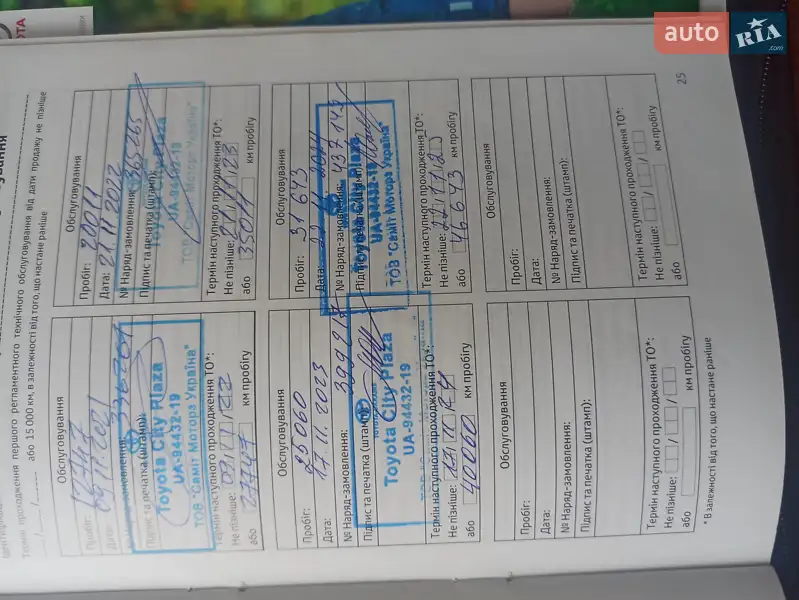 auto RIA .com
Термін проходження першого регламентного технічного обслуговування від дати продажу не пізніше
або 15 000 км, в залежності від того, що настане раніше
Обслуговування
Дата:
№ Наряд-замовлення: 336201
Підпис та печатка (штамп):
Toyota City Plaza
UA-94432-19
ТОВ "Саміт Моторз Україна"
Термін наступного проходження ТО*:
Не пізніше:
або км пробігу
Обслуговування
Пробіг: 20011
Дата: 21.11.2022
№ Наряд-замовлення: 365265
Підпис та печатка (штамп):
Toyota City Plaza
UA-94432-19
ТОВ "Саміт Моторз Україна"
Термін наступного проходження ТО*:
Не пізніше: 21/11/23
або 35011 км пробігу
Обслуговування
Пробіг: 25060
Дата: 17.11.2023
№ Наряд-замовлення:
Підпис та печатка (штамп):
Toyota City Plaza
UA-94432-19
Термін наступного проходження ТО*:
Не пізніше:
або 40060 км пробігу
Обслуговування
Пробіг: 31643
Дата: 2024
№ Наряд-замовлення:
Toyota City Plaza
UA-94432-19
ТОВ "Саміт Моторз Україна"
Термін наступного проходження ТО*:
Не пізніше:
або 46643 км пробігу
Обслуговування
Пробіг:
Дата:
№ Наряд-замовлення:
Підпис та печатка (штамп):
Термін наступного проходження ТО*:
Не пізніше: / /
або км пробігу
Обслуговування
Пробіг:
Дата:
№ Наряд-замовлення:
Підпис та печатка (штамп):
Термін наступного проходження ТО*:
Не пізніше: / /
або км пробігу
* В залежності від того, що настане раніше
25